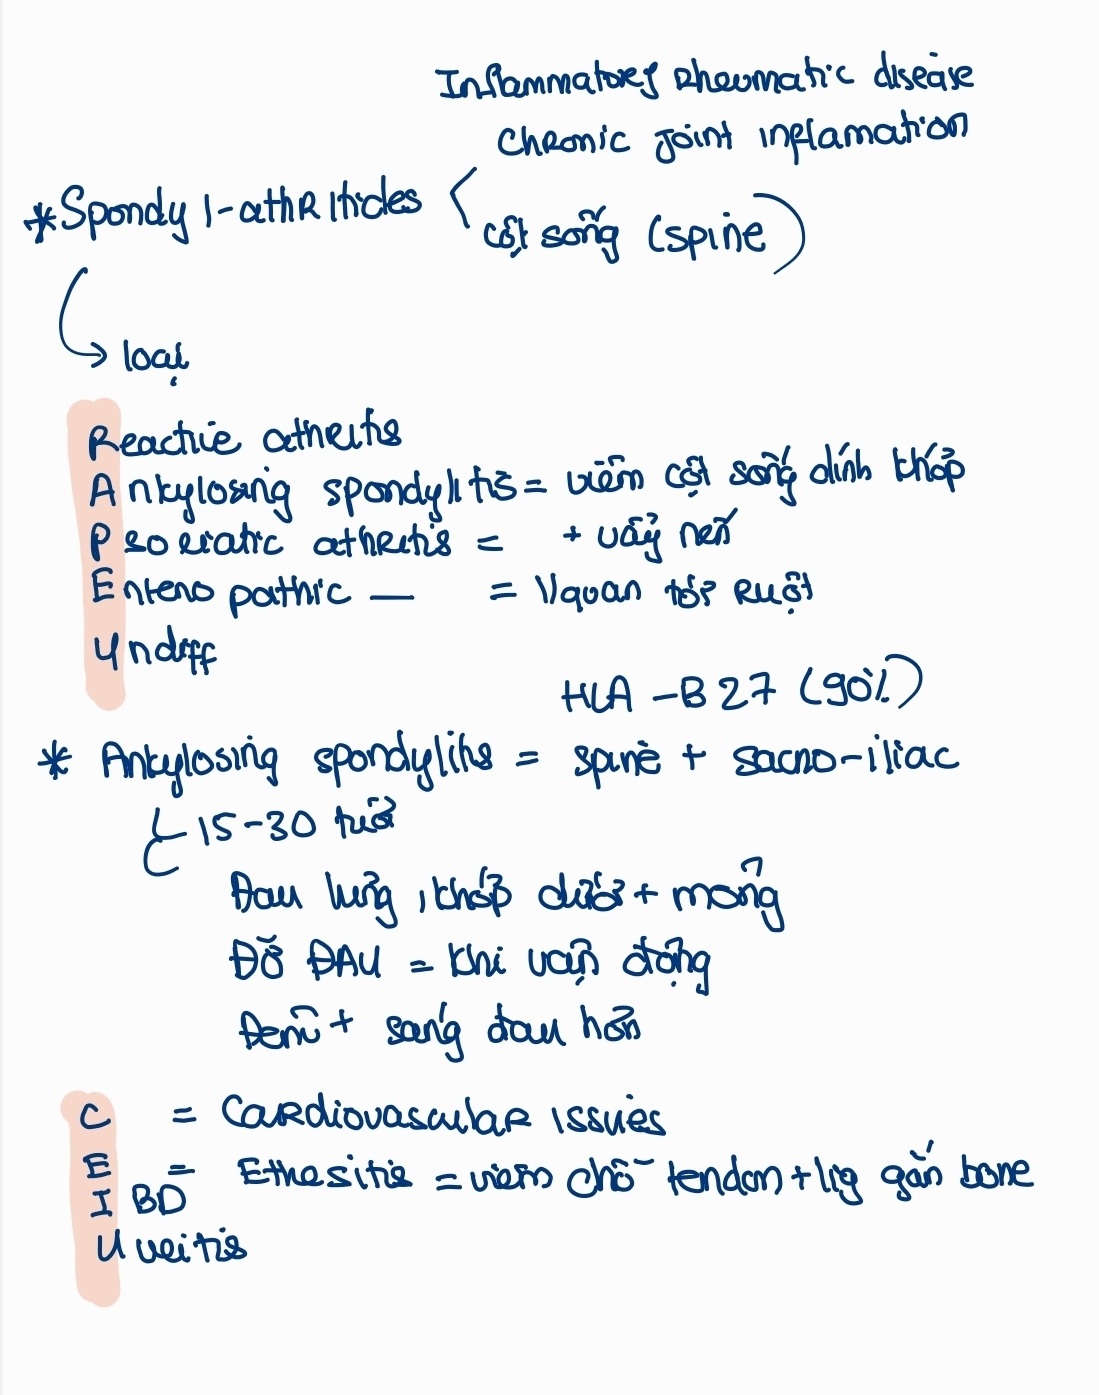 Inflammatory Rheumatic disease
Chronic joint inflamation
*Spondyl-athRitides <
cột sống (spine)
→ loại
Reactive athritis
Ankylosing spondylitis = viêm cột sống dính khớp
Psoriatic athritis = + vảy nến
Entero pathic — = l/quan tới Ruột
Undiff
HLA-B27 (90%)
* Ankylosing spondylitis = spine + sacro-iliac
15-30 tuổi
Đau lưng, khớp dưới + mông
ĐỠ ĐAU = khi vận động
Đêm + sáng đau hơn
C = Cardiovascular issues
E = Ethesitis = viêm chỗ tendon + lig gắn bone
IBD
Uveitis